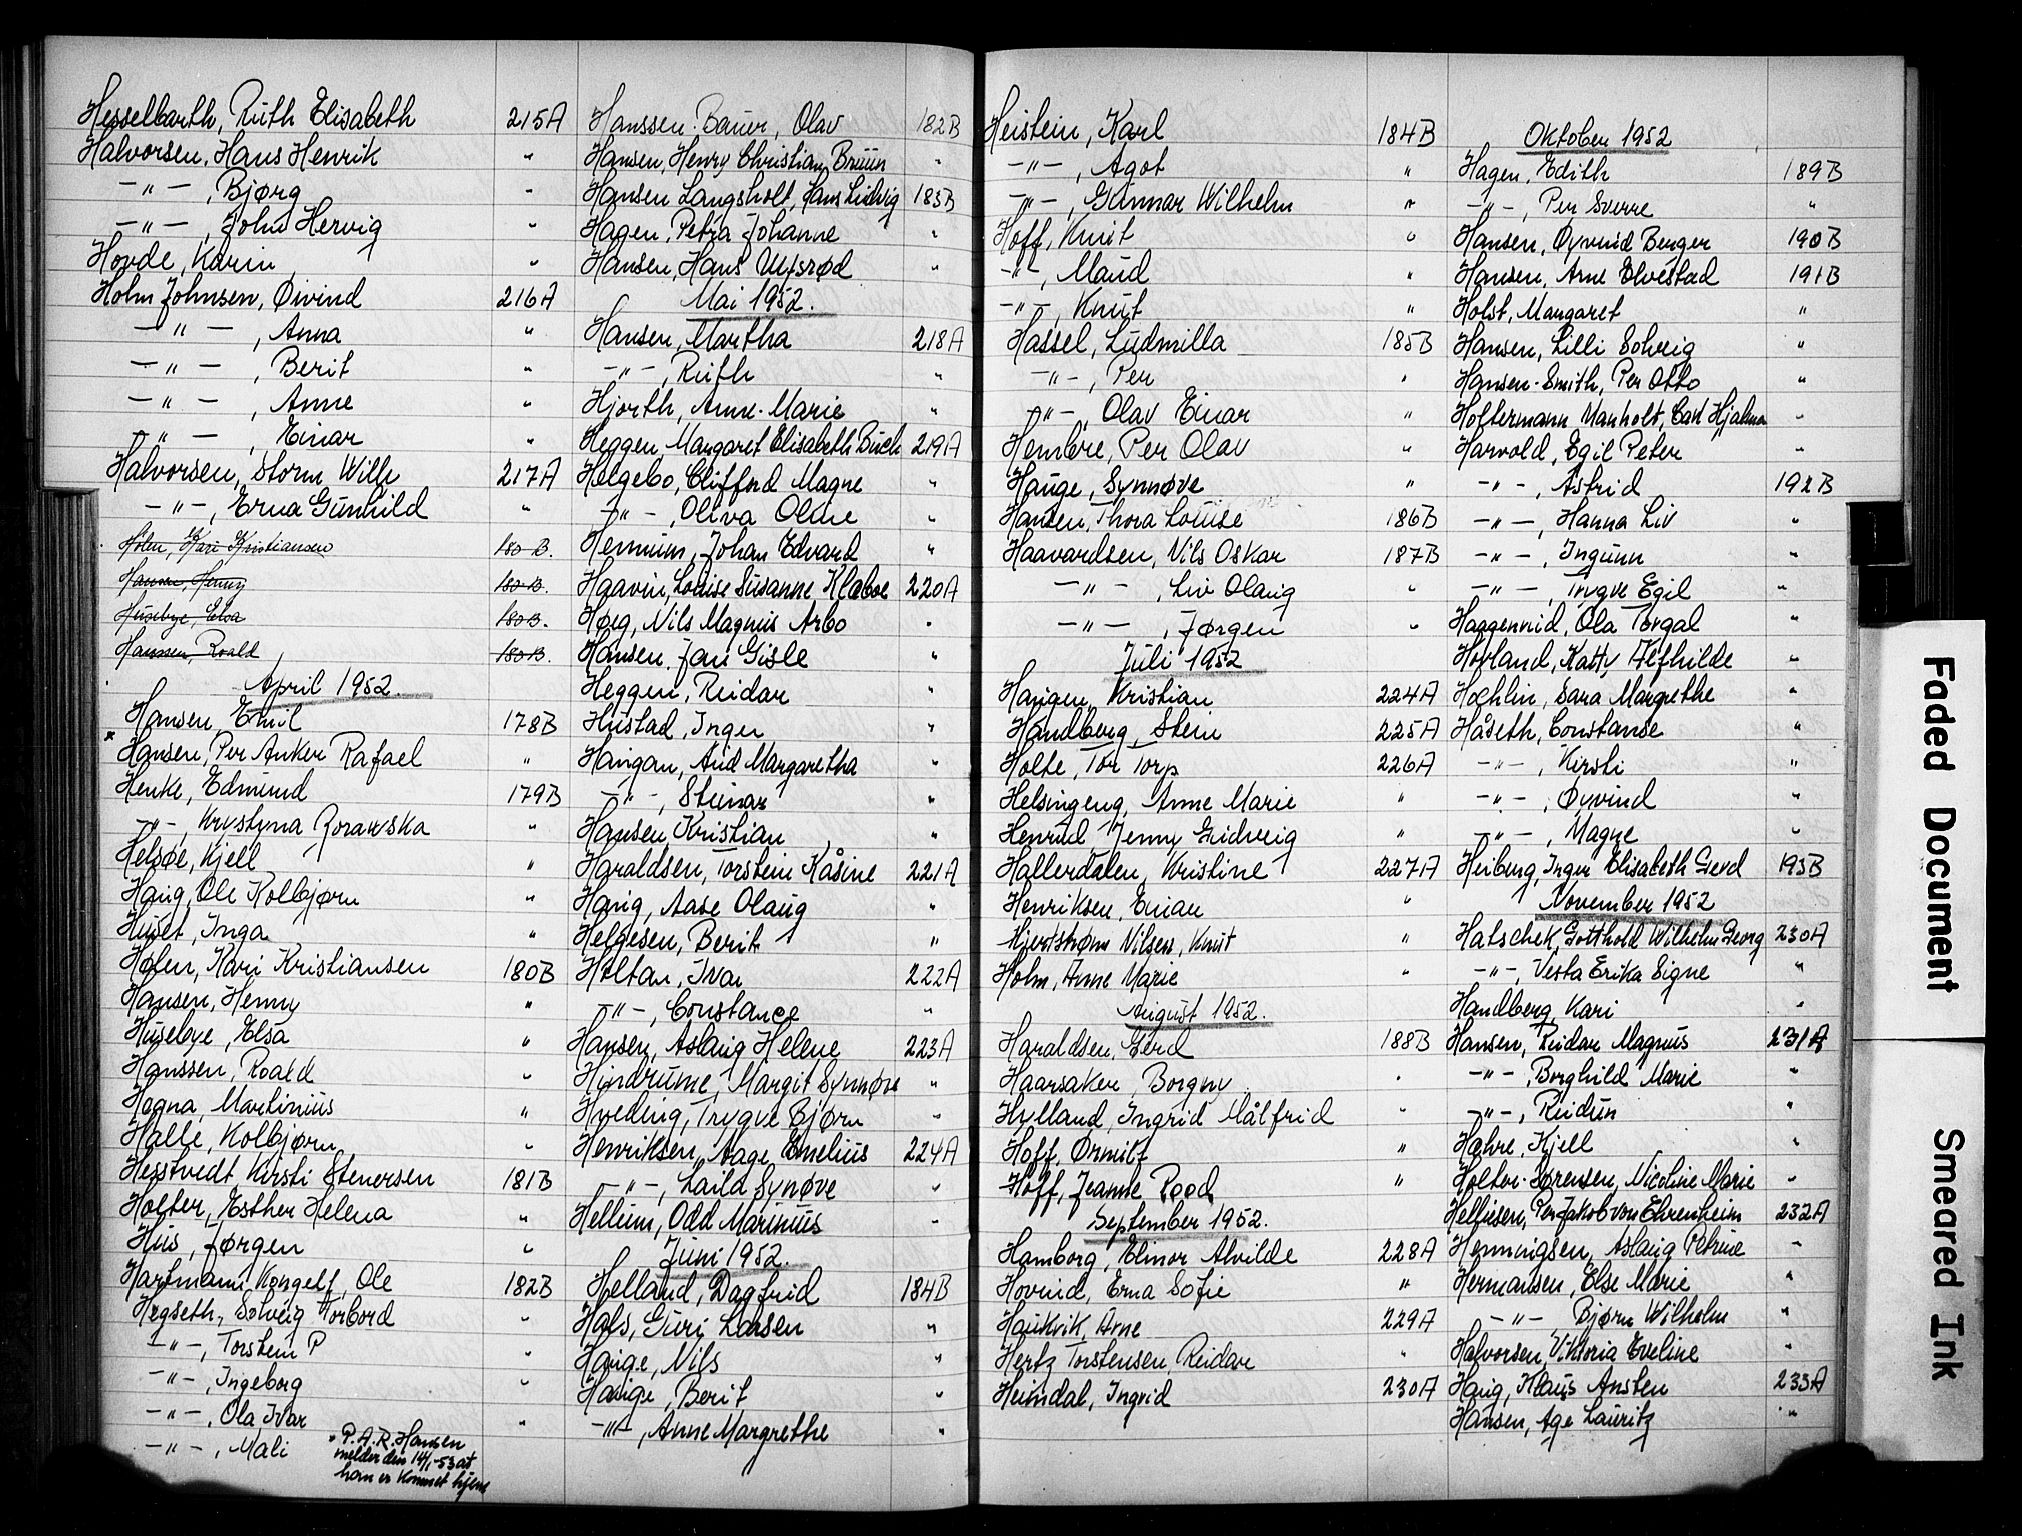 Hesselbarth, Ruth Elisabeth 215A
Halvorsen, Hans Henrik "
-"-, Bjørg "
-"-, John Hervig "
Hovde, Karin "
Holm Johnsen, Øivind 216A
-"-, Anna "
-"-, Berit "
-"-, Anne "
-"-, Einar "
Halvorsen, Storm Willy 217A
-"-, Erna Gunhild "
Hølen, Kari Kristiansen 180 B.
Hansen, Henny 180 B.
Husebye, Elsa 180 B.
Hanssen, Roald 180 B.
April 1952.
Hansen, Emil 178B
x Hansen, Per Anker Rafael "
Henke, Edmund 179B
-"-, Krystyna Zorawska "
Helsøe, Kjell "
Haug, Ole Kolbjørn "
Huset, Inga "
Hølen, Kari Kristiansen 180B
Hansen, Henny "
Husebye, Elsa "
Hanssen, Roald "
Hogna, Martinius "
Halle, Kolbjørn "
Hesstvedt Kirsti Stenersen 181B
Holter, Esther Helena "
Hus, Jørgen "
Hartmann Kongelf, Ole 182B
Hegseth, Solveig Torbord "
-"-, Torstein P "
-"-, Ingeborg "
-"-, Ola Ivar "
-"-, Mali
x P.A.R. Hansen
melder den 14/1-53 at
han er kommet hjem
Hanssen-Bauer, Olav 182B
Hansen, Henry Christian Bruun "
Hansen Langsholt, Hans Ludvig 183B
Hagen, Petra Johanne "
Hansen, Hans Ulfsrød "
Mai 1952.
Hansen, Martha 218A
-"-, Ruth "
Hjorth, Anne-Marie "
Heggen, Margaret Elisabeth Buch 219A
Helgebo, Clifford Magne "
-"-, Oliva Oline "
Hennum, Johan Edvard "
Haavin, Louise Susanne Klaboe 220A
Høeg, Nils Magnus Arbo "
Hansen, Jan Gisle "
Heggen, Reidar "
Hustad, Inger "
Haugan, Aud Margaretha "
-"-, Steinar "
Hansen, Kristian "
Haraldsen, Torstein Kåsine 221A
Haug, Aase Olaug "
Helgesen, Berit "
Holtan, Ivar 222A
-"-, Constance "
Hansen, Aslaug Helene 223A
Hindrume, Margit Synnøve "
Hveding, Trygve Bjørn "
Henriksen, Aage Emelius 224A
-"-, Laila Synøve "
Hellum, Odd Marinus "
Juni 1952.
Helland, Dagfrid 184B
Hals, Guri Larsen "
Hauge, Nils "
Hauge, Berit "
-"-, Anne Margrethe "
Heistein, Karl 184B
-"-, Agot "
-"-, Gunnar Wilhelm "
Hoff, Knut "
-"-, Maud "
-"-, Knut "
Hassel, Ludmilla 185B
-"-, Per "
-"-, Olav Einar "
Hembre, Per Olav "
Hauge, Synnøve "
Hansen, Thora Louise 186B
Haavardsen, Nils Oskar 187B
-"-, Liv Olaug "
-"-, Jørgen "
Juli 1952
Haugen, Kristian 224A
Handberg, Stein 225A
Holte, Tor Torp 226A
Helsingeng, Anne Marie "
Henrud, Jenny Gudveig "
Hallerdalen, Kristine 227A
Henriksen, Einar "
Hjertstrøm Nilsen, Knut "
Holm, Anne Marie "
August 1952.
Haraldsen, Gerd 188B
Haarsaker, Borgny "
Hylland, Ingrid Målfrid "
Hoff, Ørmulf "
Hoff, Jeanne Rood "
September 1952.
Hamborg, Elinor Alvilde 228A
Hovind, Erna Sofie "
Haukvik, Arne 229A
Hertz Torstensen, Reidar "
Heimdal, Ingrid 230A
Oktober 1952
Hagen, Edith 189B
-"-, Per Sverre "
Hansen, Øyvind Berger 190B
Hansen, Arne Elvestad 191B
Holst, Margaret "
Hansen, Lilli Solveig "
Hansen-Smith, Per Otto "
Holtermann Manholt, Carl Hjalmar "
Harvold, Egil Peter "
-"-, Astrid 192B
-"-, Hanna Liv "
-"-, Ingunn "
-"-, Trygve Egil "
Haagenrud, Ola Torgal "
Hovland, Katty Alfhilde "
Hochlin, Sara Margrethe "
Håseth, Constanse "
-"-, Kirsti "
-"-, Øyvind "
-"-, Magne "
Heiberg, Inger Elisabeth Gerd 193B
November 1952
Hatschek, Gotthold Wilhelm Georg 230A
-"-, Vesta Erika Signe "
Handberg, Kari "
Hansen, Reidar Magnus 231A
-"-, Borghild Marie "
-"-, Reidun "
Høhre, Kjell "
Holter-Sørensen, Nicoline Marie "
Hellesen, Per Jakob von Ehrenheim 232A
Henningsen, Aslaug Petrine "
Hermansen, Else Marie "
-"-, Bjørn Wilhelm "
Halvorsen, Viktoria Eveline "
Haug, Klaus Ansten 233A
Hansen, Age Lauritz "
Faded Document
Smeared Ink